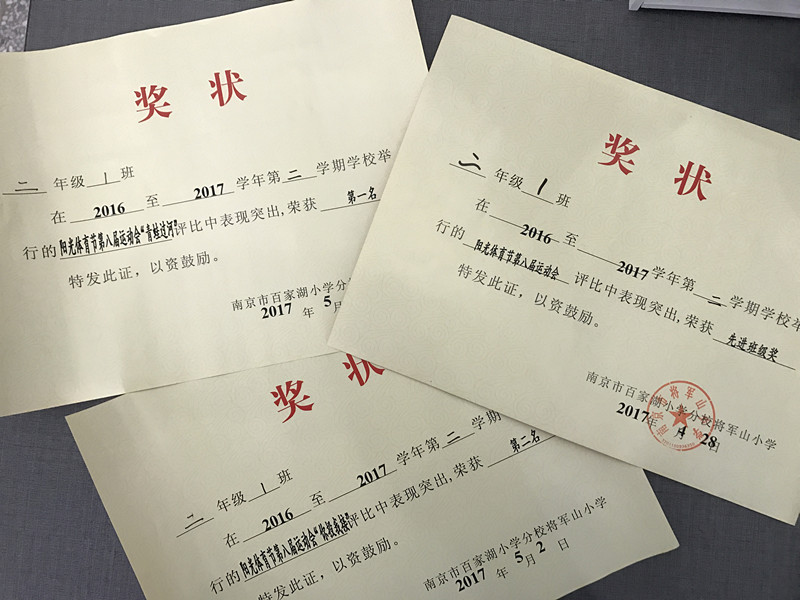 奖 状
二 年级 1 班
在 2016 至 2017 学年第 二 学期学校举
行的 阳光体育节第八届运动会“青蛙过河” 评比中表现突出,荣获 第一名
特发此证,以资鼓励。
南京市百家湖小学分校
2017 年 5 月
奖 状
二 年级 1 班
在 2016 至 2017 学年第 二 学期学校举
行的 阳光体育节第八届运动会 评比中表现突出,荣获 先进班级奖
特发此证,以资鼓励。
南京市百家湖小学分校将军山小学
2017 年 4 月 28 日
奖 状
二 年级 1 班
在 2016 至 2017 学年第 二 学期
行的 阳光体育节第八届运动会“你投我接” 评比中表现突出,荣获 第二名
特发此证,以资鼓励。
南京市百家湖小学分校将军山小学
2017 年 5 月 2 日